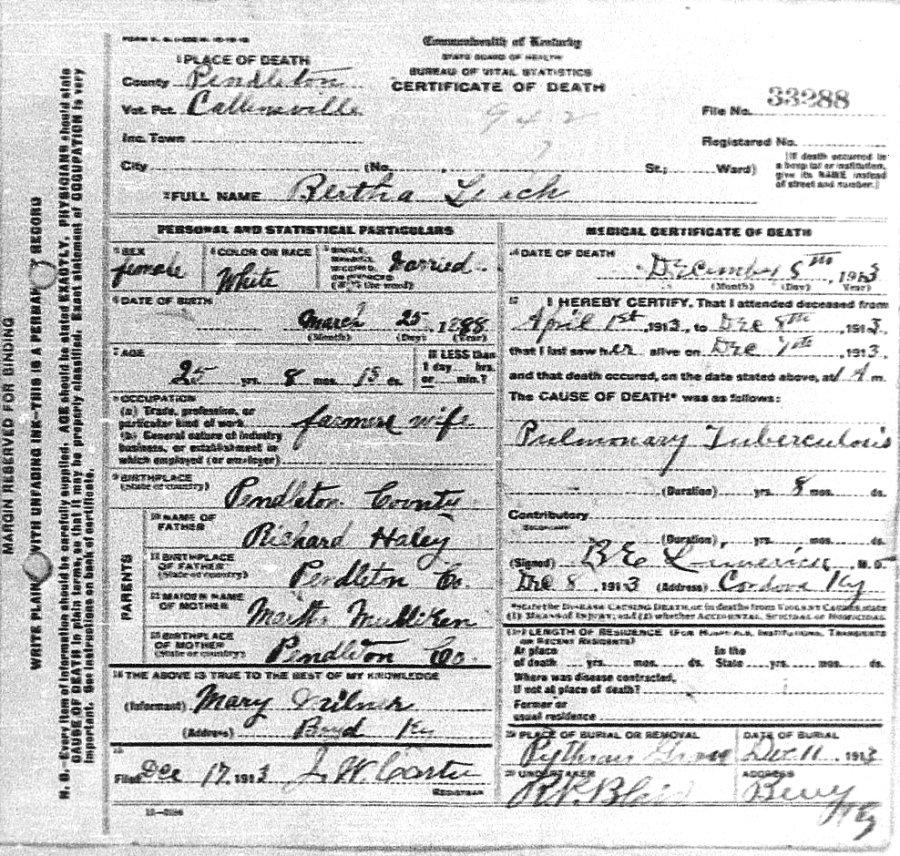 MARGIN RESERVED FOR BINDING
WRITE PLAIN WITH UNFADING INK—THIS IS A PERMAN RECORD
N. B.—Every item of information should be carefully supplied. AGE should be stated EXACTLY. PHYSICIANS should state
CAUSE OF DEATH in plain terms, so that it may be properly classified. Exact statement of OCCUPATION is very
important. See instructions on back of certificate.
Commonwealth of Kentucky
STATE BOARD OF HEALTH
BUREAU OF VITAL STATISTICS
CERTIFICATE OF DEATH
1 PLACE OF DEATH
County Pendleton
Vot. Pct. Callensville
Inc. Town
City (No. St.; Ward)
942
File No. 33288
Registered No.
[If death occurred in
a hospital or institution,
give its NAME instead
of street and number.]
2 FULL NAME Bertha
PERSONAL AND STATISTICAL PARTICULARS
3 SEX female
4 COLOR OR RACE White
5 SINGLE, MARRIED, WIDOWED, OR DIVORCED (Write the word) Married
6 DATE OF BIRTH
March 25, 1888
(Month) (Day) (Year)
7 AGE
25 yrs. 8 mos. 15 ds.
If LESS than
1 day hrs.
or min.?
8 OCCUPATION
(a) Trade, profession, or
particular kind of work farmers wife
(b) General nature of industry
business, or establishment in
which employed (or employer)
9 BIRTHPLACE
(State or country) Pendleton County
PARENTS
10 NAME OF
FATHER Richard Haley
11 BIRTHPLACE
OF FATHER
(State or country) Pendleton Co.
12 MAIDEN NAME
OF MOTHER Mulliken
13 BIRTHPLACE
OF MOTHER
(State or country) Pendleton Co.
14 THE ABOVE IS TRUE TO THE BEST OF MY KNOWLEDGE
(Informant) Mary Milner
(Address) Boyd Ky
15
Filed Dec 17, 1913 J W Carter
REGISTRAR
MEDICAL CERTIFICATE OF DEATH
16 DATE OF DEATH
December 8th, 1913
(Month) (Day) (Year)
17 I HEREBY CERTIFY, That I attended deceased from
April 1st, 1913, to Dec 8th, 1913,
that I last saw her alive on Dec 7th, 1913,
and that death occured, on the date stated above, at 1 A m.
The CAUSE OF DEATH* was as follows:
Pulmonary Tuberculosis
(Duration) yrs. 8 mos. ds.
Contributory
SECONDARY
(Duration) yrs. mos. ds.
(Signed) B E Limerick M. D.
Dec 8, 1913 (Address) Cordova Ky
*State the DISEASE CAUSING DEATH, or in deaths from VIOLENT CAUSES, state
(1) MEANS OF INJURY; and (2) whether ACCIDENTAL, SUICIDAL or HOMICIDAL.
18 LENGTH OF RESIDENCE (FOR HOSPITALS, INSTITUTIONS, TRANSIENTS
OR RECENT RESIDENTS)
At place In the
of death yrs. mos. ds. State yrs. mos. ds.
Where was disease contracted,
If not at place of death?
Former or
usual residence
19 PLACE OF BURIAL OR REMOVAL DATE OF BURIAL
Pythian Grove Dec 11, 1913
20 UNDERTAKER ADDRESS
Berry
Ky